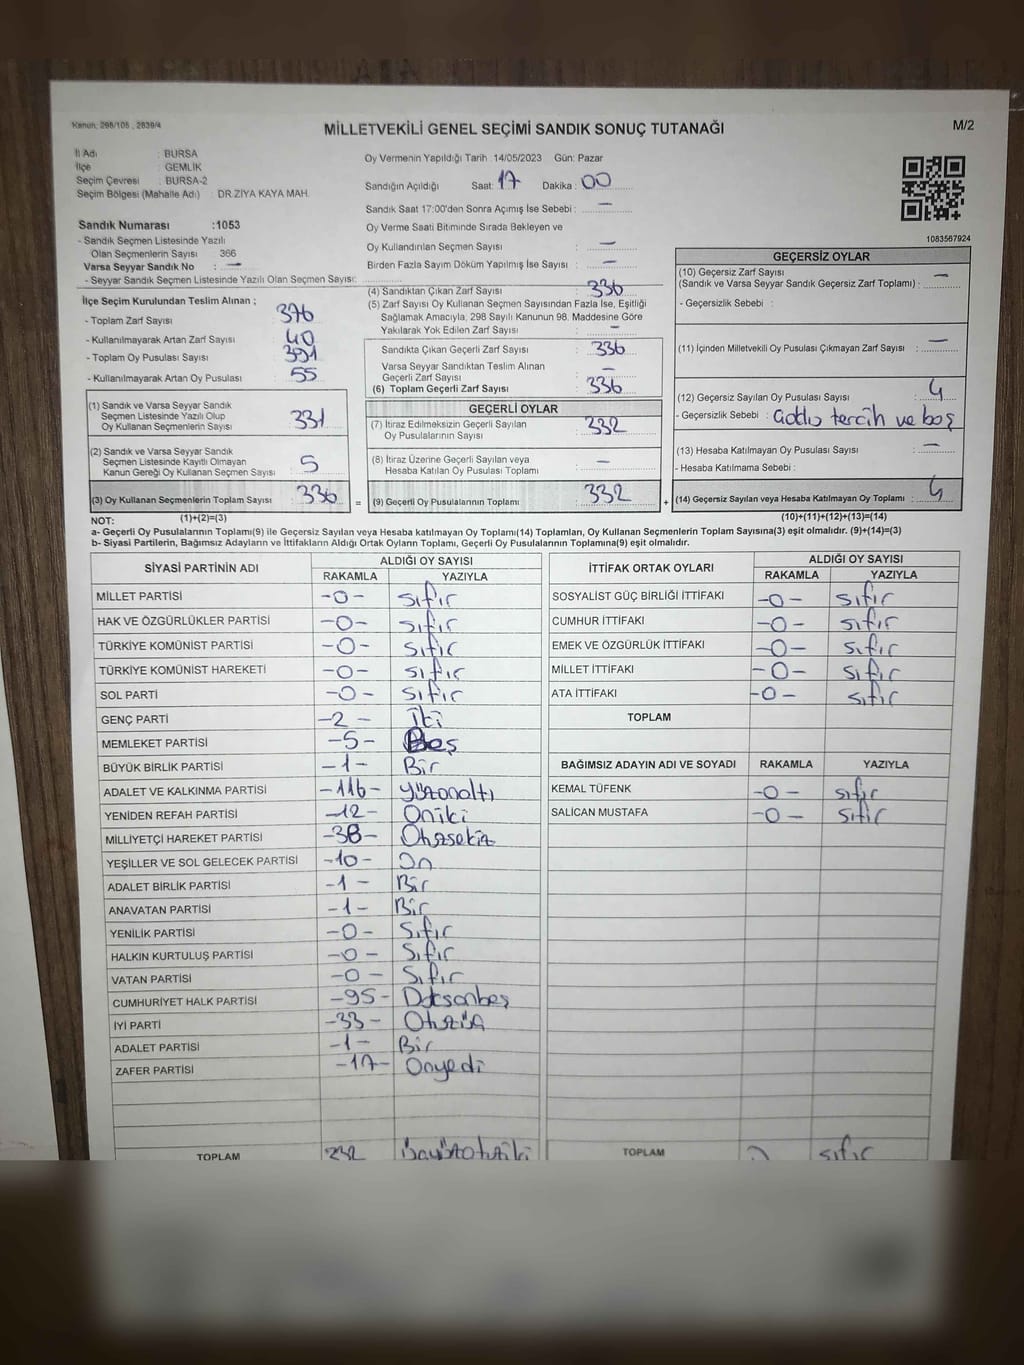 Kanun: 298/105 , 2839/4
MİLLETVEKİLİ GENEL SEÇİMİ SANDIK SONUÇ TUTANAĞI
M/2
İl Adı : BURSA
İlçe : GEMLİK
Seçim Çevresi : BURSA-2
Seçim Bölgesi (Mahalle Adı) : DR.ZİYA KAYA MAH.
Sandık Numarası :1053
- Sandık Seçmen Listesinde Yazılı
Olan Seçmenlerin Sayısı 366
Varsa Seyyar Sandık No : —
- Seyyar Sandık Seçmen Listesinde Yazılı Olan Seçmen Sayısı:
Oy Vermenin Yapıldığı Tarih :14/05/2023 Gün: Pazar
Sandığın Açıldığı Saat: 17 Dakika : 00
Sandık Saat 17:00'den Sonra Açımış İse Sebebi : —
Oy Verme Saati Bitiminde Sırada Bekleyen ve
Oy Kullandırılan Seçmen Sayısı : —
Birden Fazla Sayım Döküm Yapılmış İse Sayısı : —
1083567924
İlçe Seçim Kurulundan Teslim Alınan ;
- Toplam Zarf Sayısı : 376
- Kullanılmayarak Artan Zarf Sayısı : 40
- Toplam Oy Pusulası Sayısı : 391
- Kullanılmayarak Artan Oy Pusulası : 55
(1) Sandık ve Varsa Seyyar Sandık
Seçmen Listesinde Yazılı Olup
Oy Kullanan Seçmenlerin Sayısı : 331
(2) Sandık ve Varsa Seyyar Sandık
Seçmen Listesinde Kayıtlı Olmayan
Kanun Gereği Oy Kullanan Seçmen Sayısı : 5
(3) Oy Kullanan Seçmenlerin Toplam Sayısı : 336
(1)+(2)=(3)
(4) Sandıktan Çıkan Zarf Sayısı : 336
(5) Zarf Sayısı Oy Kullanan Seçmen Sayısından Fazla İse, Eşitliği
Sağlamak Amacıyla, 298 Sayılı Kanunun 98. Maddesine Göre
Yakılarak Yok Edilen Zarf Sayısı : —
Sandıkta Çıkan Geçerli Zarf Sayısı : 336
Varsa Seyyar Sandıktan Teslim Alınan
Geçerli Zarf Sayısı : —
(6) Toplam Geçerli Zarf Sayısı : 336
GEÇERLİ OYLAR
(7) İtiraz Edilmeksizin Geçerli Sayılan
Oy Pusulalarının Sayısı : 332
(8) İtiraz Üzerine Geçerli Sayılan veya
Hesaba Katılan Oy Pusulası Toplamı : —
= (9) Geçerli Oy Pusulalarının Toplamı : 332 +
GEÇERSİZ OYLAR
(10) Geçersiz Zarf Sayısı
(Sandık ve Varsa Seyyar Sandık Geçersiz Zarf Toplamı) : —
- Geçersizlik Sebebi :
(11) İçinden Milletvekili Oy Pusulası Çıkmayan Zarf Sayısı : —
(12) Geçersiz Sayılan Oy Pusulası Sayısı : 4
- Geçersizlik Sebebi : tercih ve boş
(13) Hesaba Katılmayan Oy Pusulası Sayısı : —
- Hesaba Katılmama Sebebi :
(14) Geçersiz Sayılan veya Hesaba Katılmayan Oy Toplamı : 4
(10)+(11)+(12)+(13)=(14)
NOT:
a- Geçerli Oy Pusulalarının Toplamı(9) ile Geçersiz Sayılan veya Hesaba katılmayan Oy Toplamı(14) Toplamları, Oy Kullanan Seçmenlerin Toplam Sayısına(3) eşit olmalıdır. (9)+(14)=(3)
b- Siyasi Partilerin, Bağımsız Adayların ve İttifakların Aldığı Oyların Toplamı, Geçerli Oy Pusulalarının Toplamına(9) eşit olmalıdır.
SİYASİ PARTİNİN ADI ALDIĞI OY SAYISI
RAKAMLA YAZIYLA
MİLLET PARTİSİ -0- sıfır
HAK VE ÖZGÜRLÜKLER PARTİSİ -0- sıfır
TÜRKİYE KOMÜNİST PARTİSİ -0- sıfır
TÜRKİYE KOMÜNİST HAREKETİ -0- sıfır
SOL PARTİ -0- sıfır
GENÇ PARTİ -2- İki
MEMLEKET PARTİSİ -5- Beş
BÜYÜK BİRLİK PARTİSİ -1- Bir
ADALET VE KALKINMA PARTİSİ -116- yüzonaltı
YENİDEN REFAH PARTİSİ -12- Oniki
MİLLİYETÇİ HAREKET PARTİSİ -38- Otuzsekiz
YEŞİLLER VE SOL GELECEK PARTİSİ -10- On
ADALET BİRLİK PARTİSİ -1- Bir
ANAVATAN PARTİSİ -1- Bir
YENİLİK PARTİSİ -0- Sıfır
HALKIN KURTULUŞ PARTİSİ -0- Sıfır
VATAN PARTİSİ -0- Sıfır
CUMHURİYET HALK PARTİSİ -95- Doksanbeş
İYİ PARTİ -33- Otuzüç
ADALET PARTİSİ -1- Bir
ZAFER PARTİSİ -17- Onyedi
TOPLAM
İTTİFAK ORTAK OYLARI ALDIĞI OY SAYISI
RAKAMLA YAZIYLA
SOSYALİST GÜÇ BİRLİĞİ İTTİFAKI -0- sıfır
CUMHUR İTTİFAKI -0- sıfır
EMEK VE ÖZGÜRLÜK İTTİFAKI -0- sıfır
MİLLET İTTİFAKI -0- sıfır
ATA İTTİFAKI -0- sıfır
TOPLAM
BAĞIMSIZ ADAYIN ADI VE SOYADI RAKAMLA YAZIYLA
KEMAL TÜFENK -0- sıfır
SALİCAN MUSTAFA -0- sıfır
TOPLAM sıfır